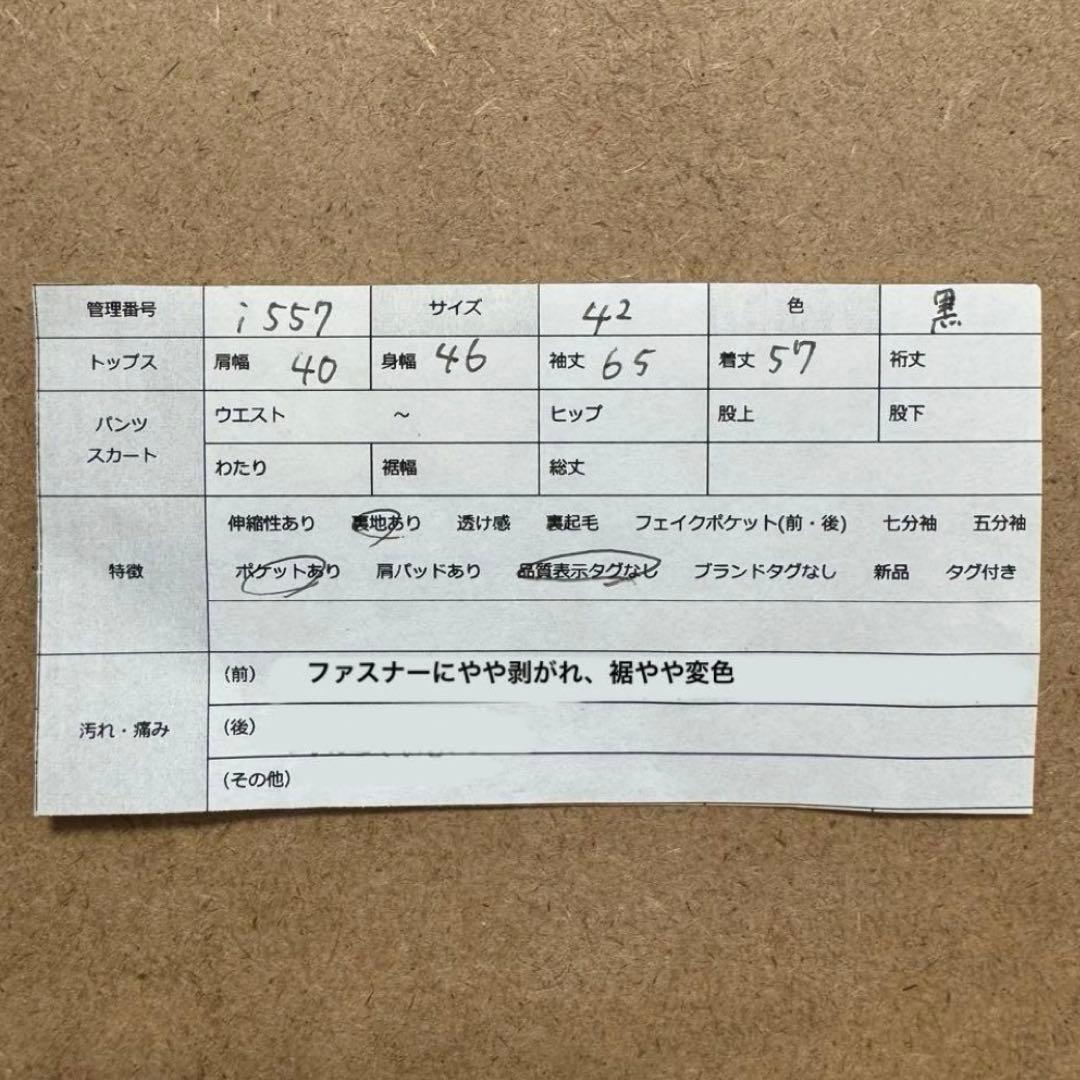 管理番号 i 557 サイズ 42 色 黒
トップス 肩幅 40 身幅 46 袖丈 65 着丈 57 裄丈
パンツ スカート ウエスト 〜 ヒップ 股上 股下
わたり 裾幅 総丈
伸縮性あり 裏地あり 透け感 裏起毛 フェイクポケット(前・後) 七分袖 五分袖
特徴 ポケットあり 肩パッドあり 品質表示タグなし ブランドタグなし 新品 タグ付き
(前) ファスナーにやや剥がれ、裾やや変色
汚れ・痛み (後)
(その他)